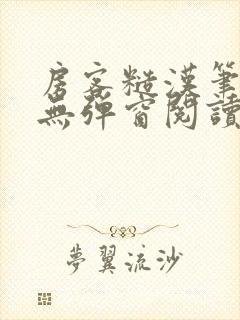 房客糙漢筆
無彈窗閱讀
夢翼流沙